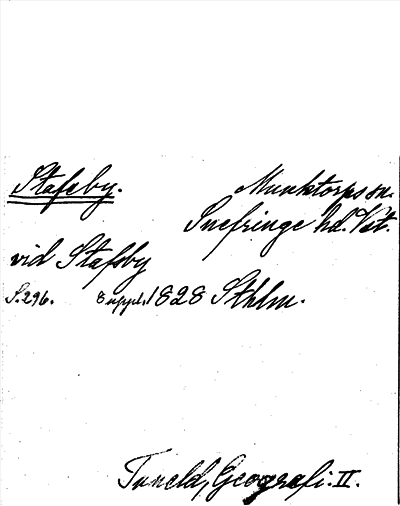 Stafsby. Munktorps sn.
Snefringe hd. Vät.
vid Stafsby
S. 296. 8 uppl. 1828 Sthlm.
Tuneld, Geografi. II.